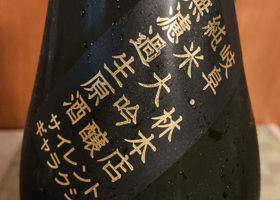 岐阜 林本店
純米大吟醸
無濾過生原酒
サイレント
ギャラクシ